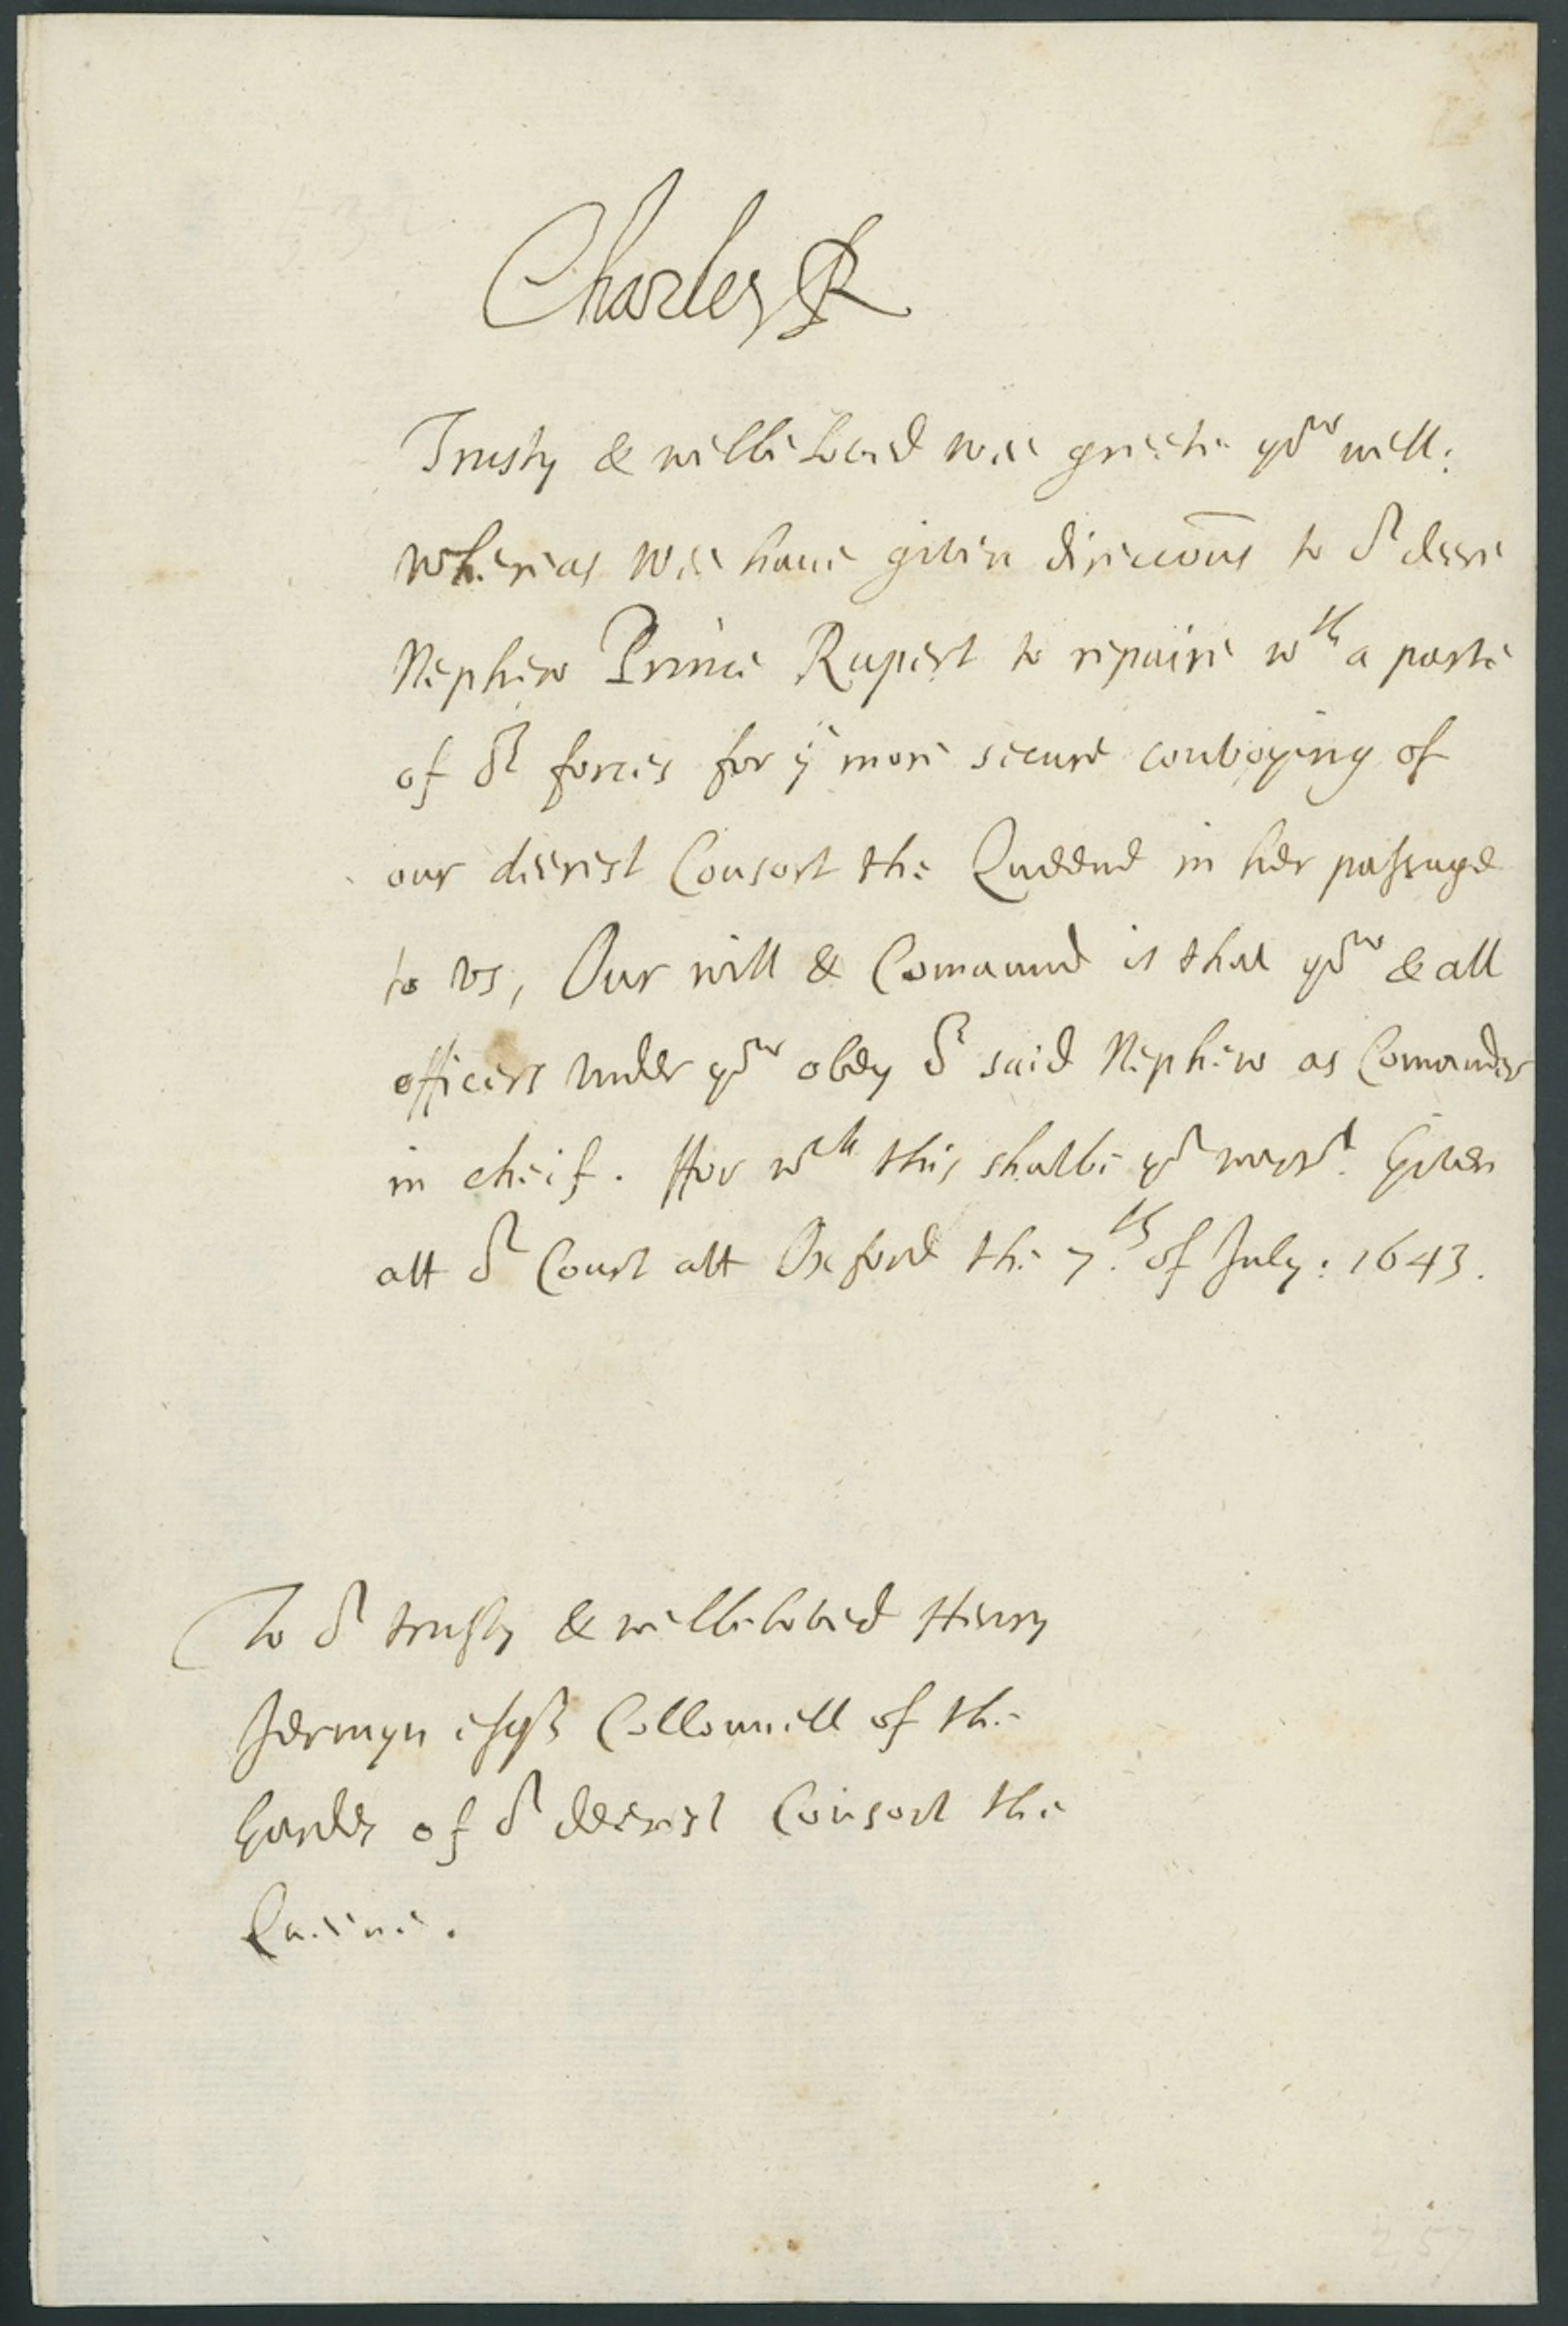 Charles R
Trusty & welbeloved wee greete yow well:
Whereas Wee haue given direccõns to or deere
Nephew Prince Rupert to repaire wth a parte
of or forces for ye more secure convoying of
our deerest Consort the Queene in her passage
to vs, Our will & Comaund is that yow & all
officers vnder yow obey or said Nephew as Comander
in cheif. ffor wch this shalbe yr warrt. Given
att or Court att Oxford the 7th. of July: 1643.
To or trusty & wellbeloved Henry
Jermyn esqr Collonnell of the
Gardes of or deerest Consort the
Queene.